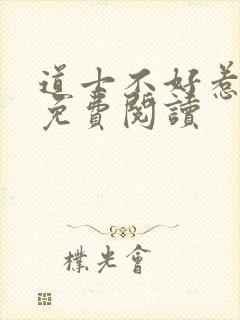 道士不好惹
免費閱讀
樸光會